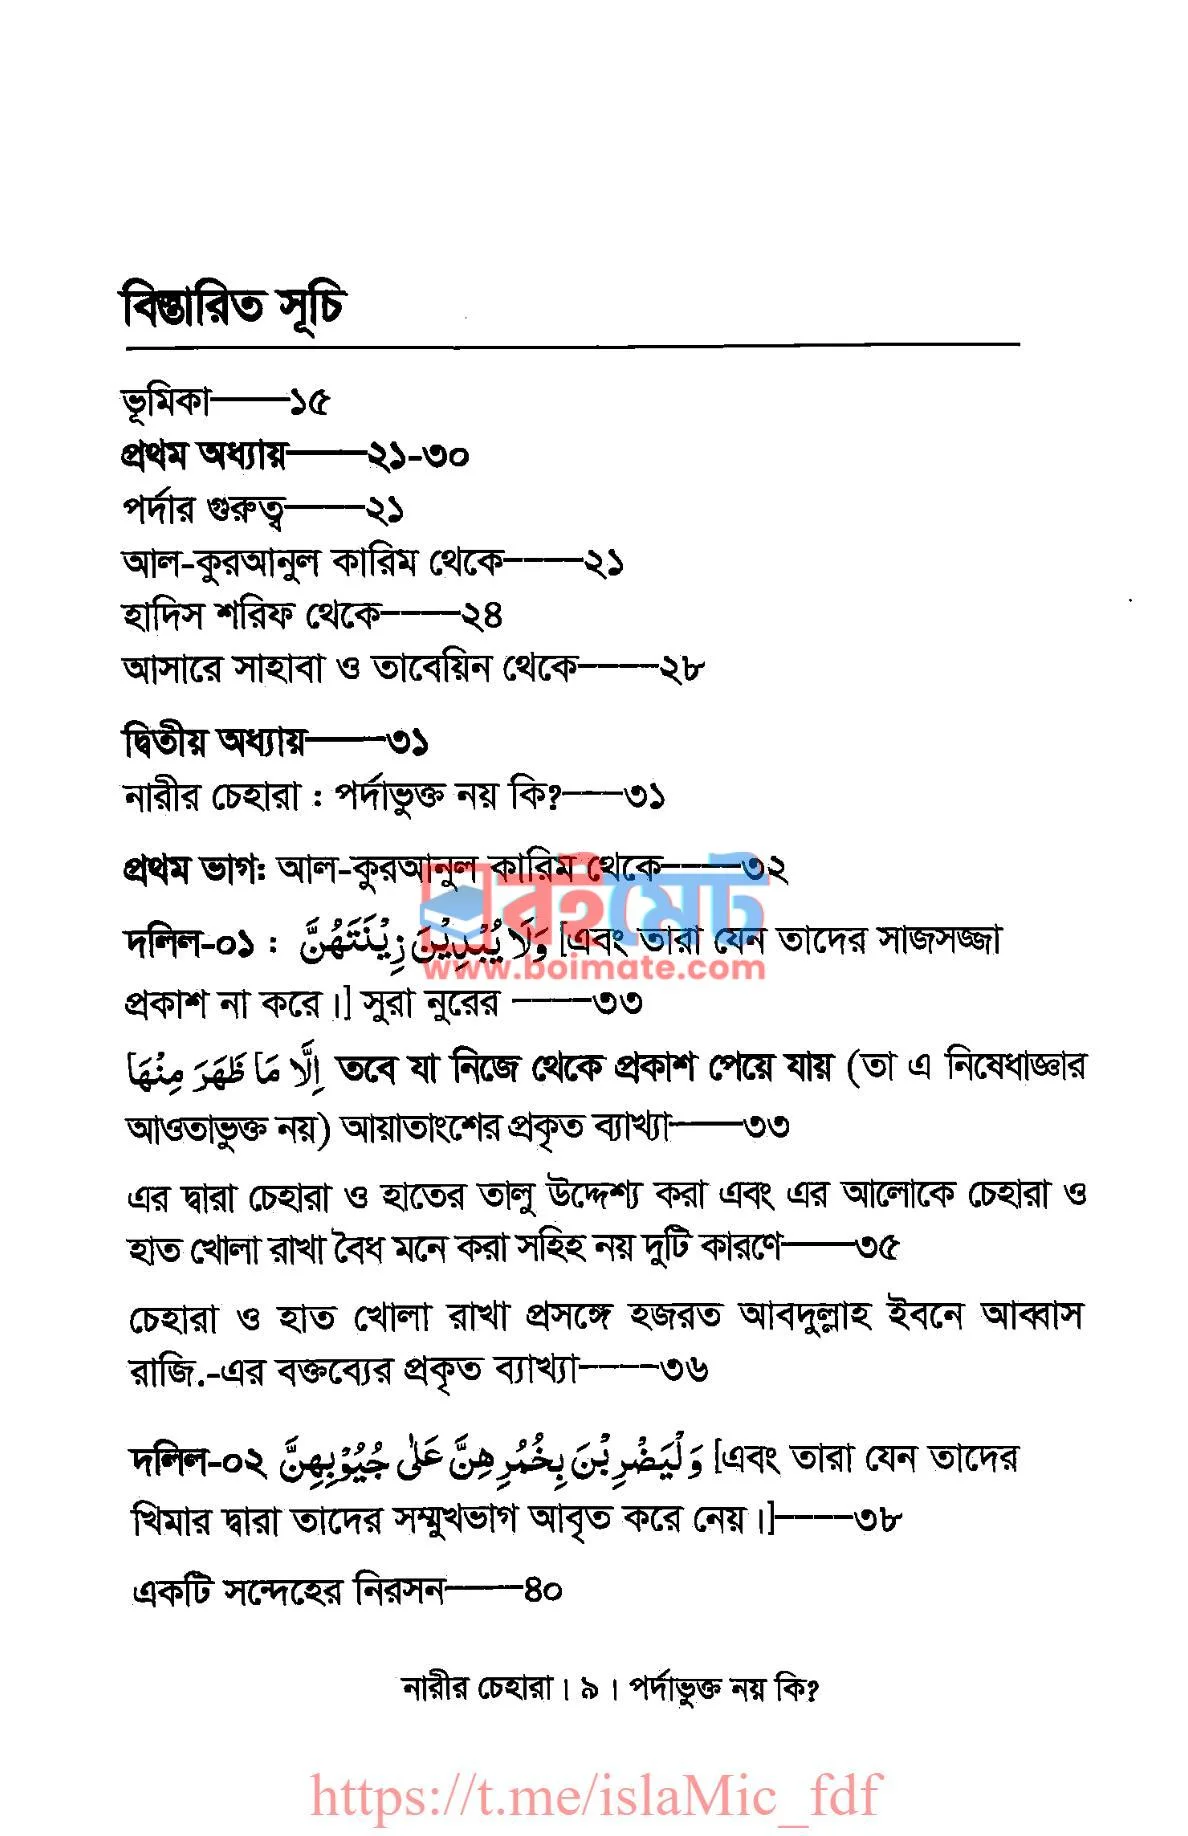 বিস্তারিত সূচি
ভূমিকা——১৫
প্রথম অধ্যায়——২১-৩০
পর্দার গুরুত্ব——২১
আল-কুরআনুল কারিম থেকে——২১
হাদিস শরিফ থেকে——২৪
আসারে সাহাবা ও তাবেয়িন থেকে——২৮
দ্বিতীয় অধ্যায়——৩১
নারীর চেহারা : পর্দাভুক্ত নয় কি?——৩১
প্রথম ভাগ: আল-কুরআনুল কারিম থেকে——৩২
বইমেট
দলিল-০১ : وَلَا يُبْدِيْنَ زِيْنَتَهُنَّ [এবং তারা যেন তাদের সাজসজ্জা
www.boimate.com
প্রকাশ না করে।] সুরা নুরের ——৩৩
اِلَّا مَا ظَهَرَ مِنْهَا তবে যা নিজে থেকে প্রকাশ পেয়ে যায় (তা এ নিষেধাজ্ঞার
আওতাভুক্ত নয়) আয়াতাংশের প্রকৃত ব্যাখ্যা——৩৩
এর দ্বারা চেহারা ও হাতের তালু উদ্দেশ্য করা এবং এর আলোকে চেহারা ও
হাত খোলা রাখা বৈধ মনে করা সহিহ নয় দুটি কারণে——৩৫
চেহারা ও হাত খোলা রাখা প্রসঙ্গে হজরত আবদুল্লাহ ইবনে আব্বাস
রাজি.-এর বক্তব্যের প্রকৃত ব্যাখ্যা——৩৬
দলিল-০২ وَلْيَضْرِبْنَ بِخُمُرِهِنَّ عَلٰى جُيُوْبِهِنَّ [এবং তারা যেন তাদের
খিমার দ্বারা তাদের সম্মুখভাগ আবৃত করে নেয়।]——৩৮
একটি সন্দেহের নিরসন——৪০
নারীর চেহারা। ৯ । পর্দাভুক্ত নয় কি?
https://t.me/islaMic_fdf